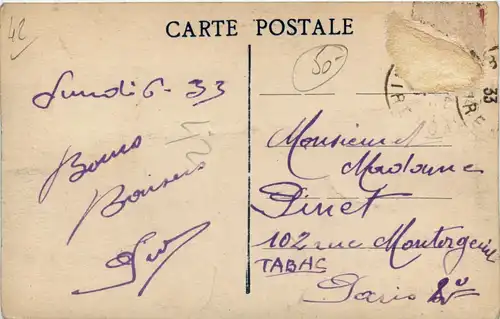 42
CARTE POSTALE
50-
33
Lundi 6-33
Bons
Baisers
42
Monsieur et
Madame
Pinet
102 rue Montorgueil
TABAC
Paris 2e